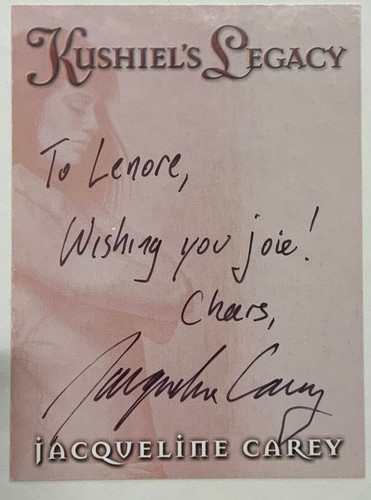 Kushiel's Legacy
To Lenore,
Wishing you joie!
Cheers,
Jacqueline Carey
Jacqueline Carey